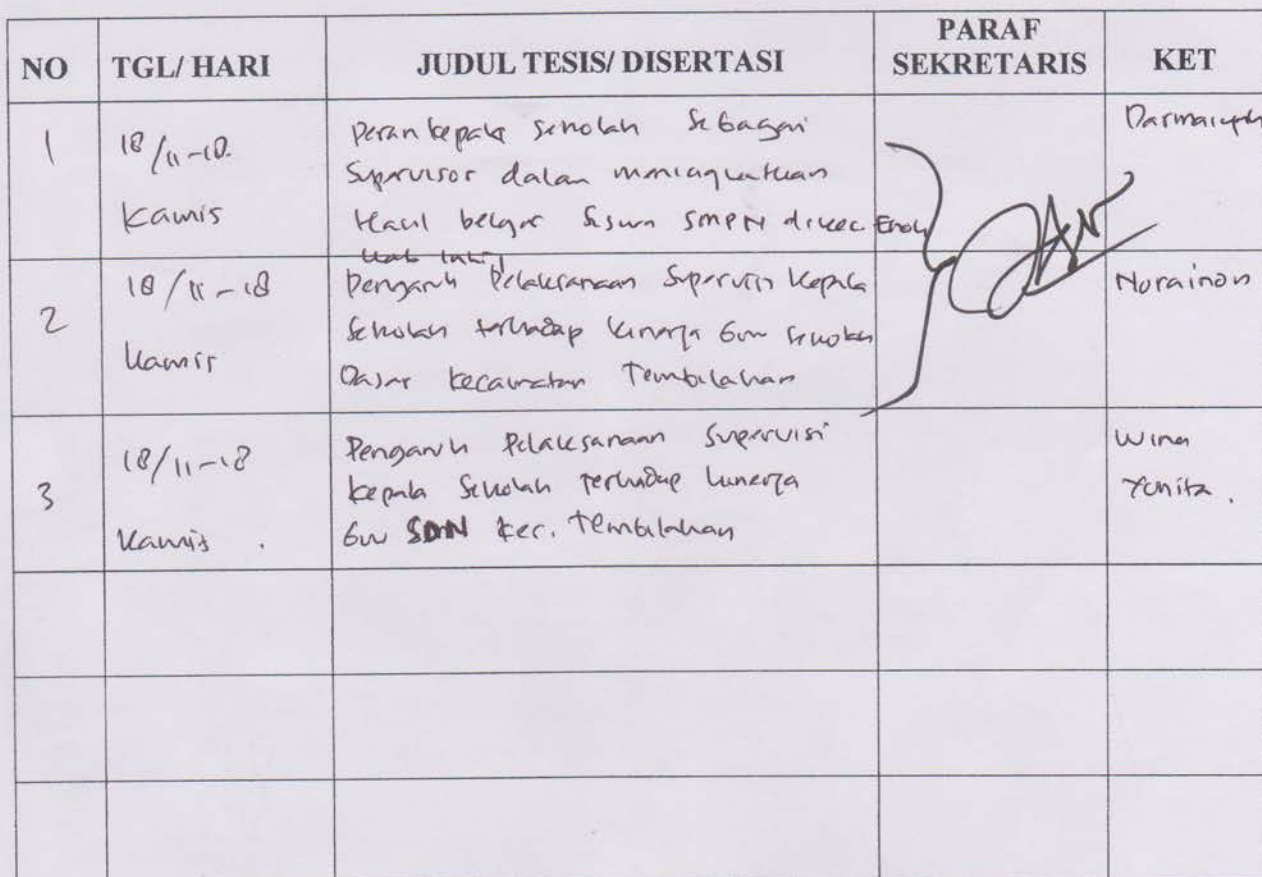 NO TGL/ HARI JUDUL TESIS/ DISERTASI PARAF SEKRETARIS KET
1 18/11-18. Kamis
Peran kepala sekolah sebagai
Supervisor dalam meningkatkan
Hasil belajar siswa SMPN di kec Enok
Kab Inhil
2 18/11-18 Kamis
Pengaruh Pelaksanaan Supervisi Kepala
Sekolah terhadap kinerja Guru Sekolah
Dasar Kecamatan Tembilahan
Norainon
3 18/11-18 Kamis.
Pengaruh Pelaksanaan Supervisi
Kepala Sekolah terhadap kinerja
Guru SDN Kec. Tembilahan
Wina
Yunita.